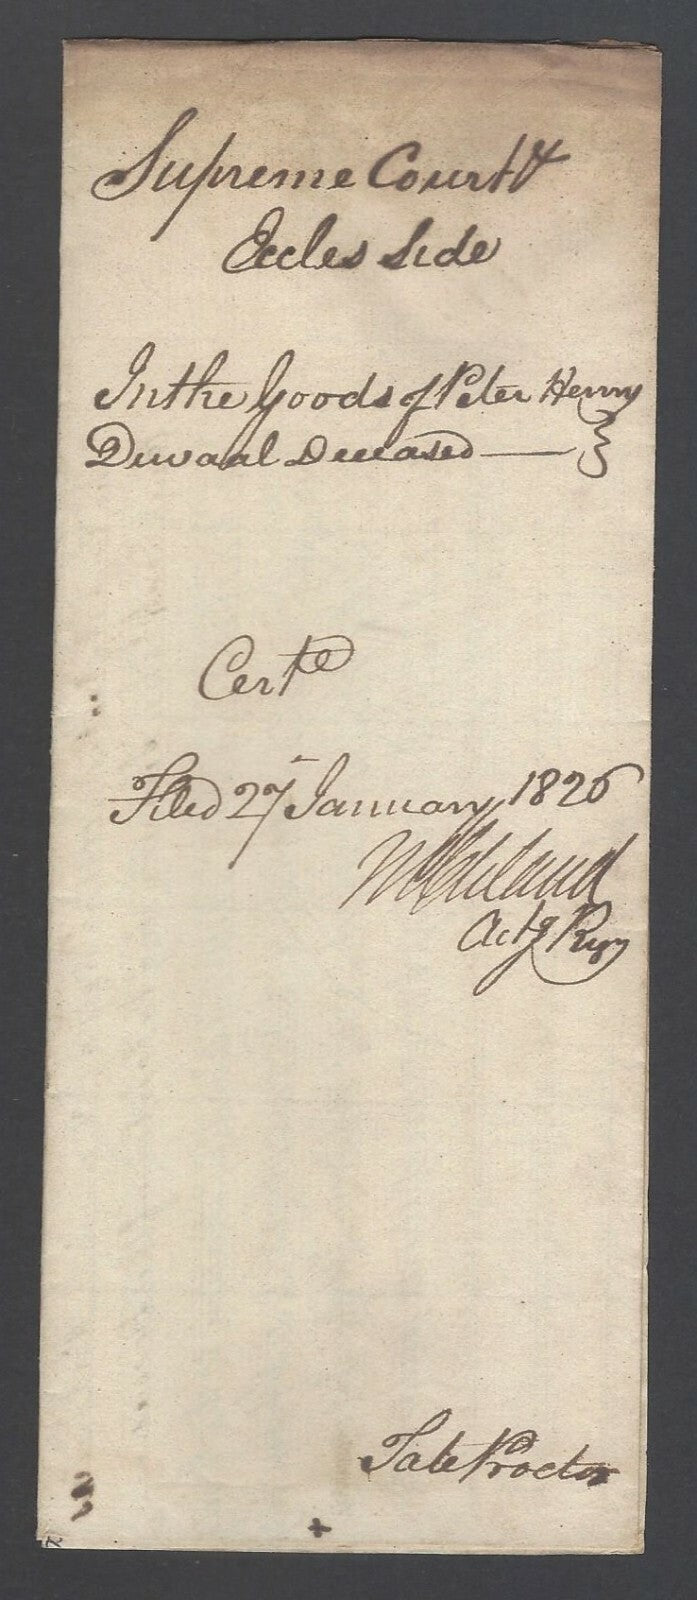 Supreme Court &
Eccles Side
In the Goods of Peter Henry
Dewaal Deceased
Certe
Filed 27 January 1826
Actg Regr
Tate Proctor